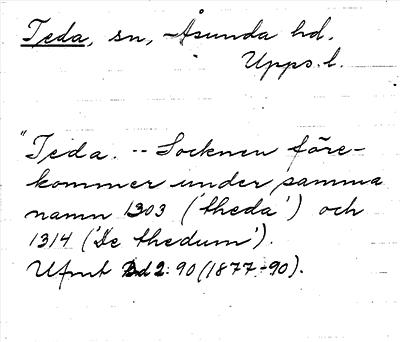 Teda, sn, Åsunda hd.
Upps. l.
"Teda. -- Socknen före-
kommer under samma
namn 1303 ('theda') och
1314 ('De thedum').
Ufmt Bd 2: 90 (1877-90).